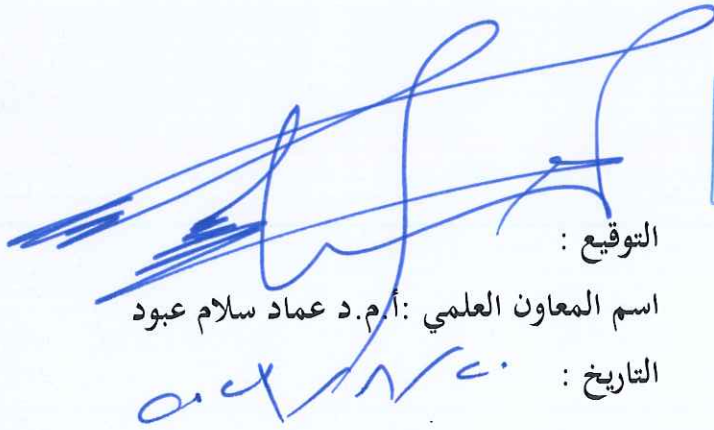 التوقيع :
اسم المعاون العلمي :أ.م.د عماد سلام عبود
التاريخ :